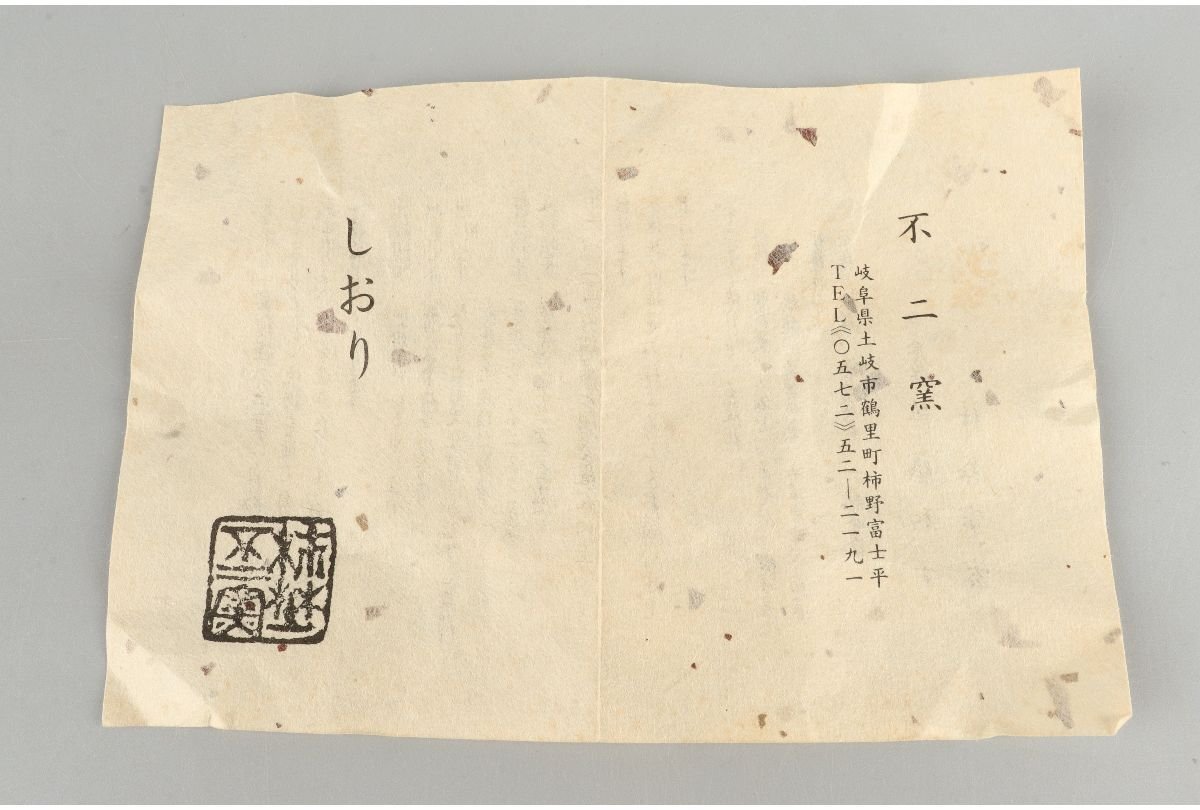 不二窯
岐阜県土岐市鶴里町柿野富士平
TEL《〇五七二》五二―二一九一
しおり